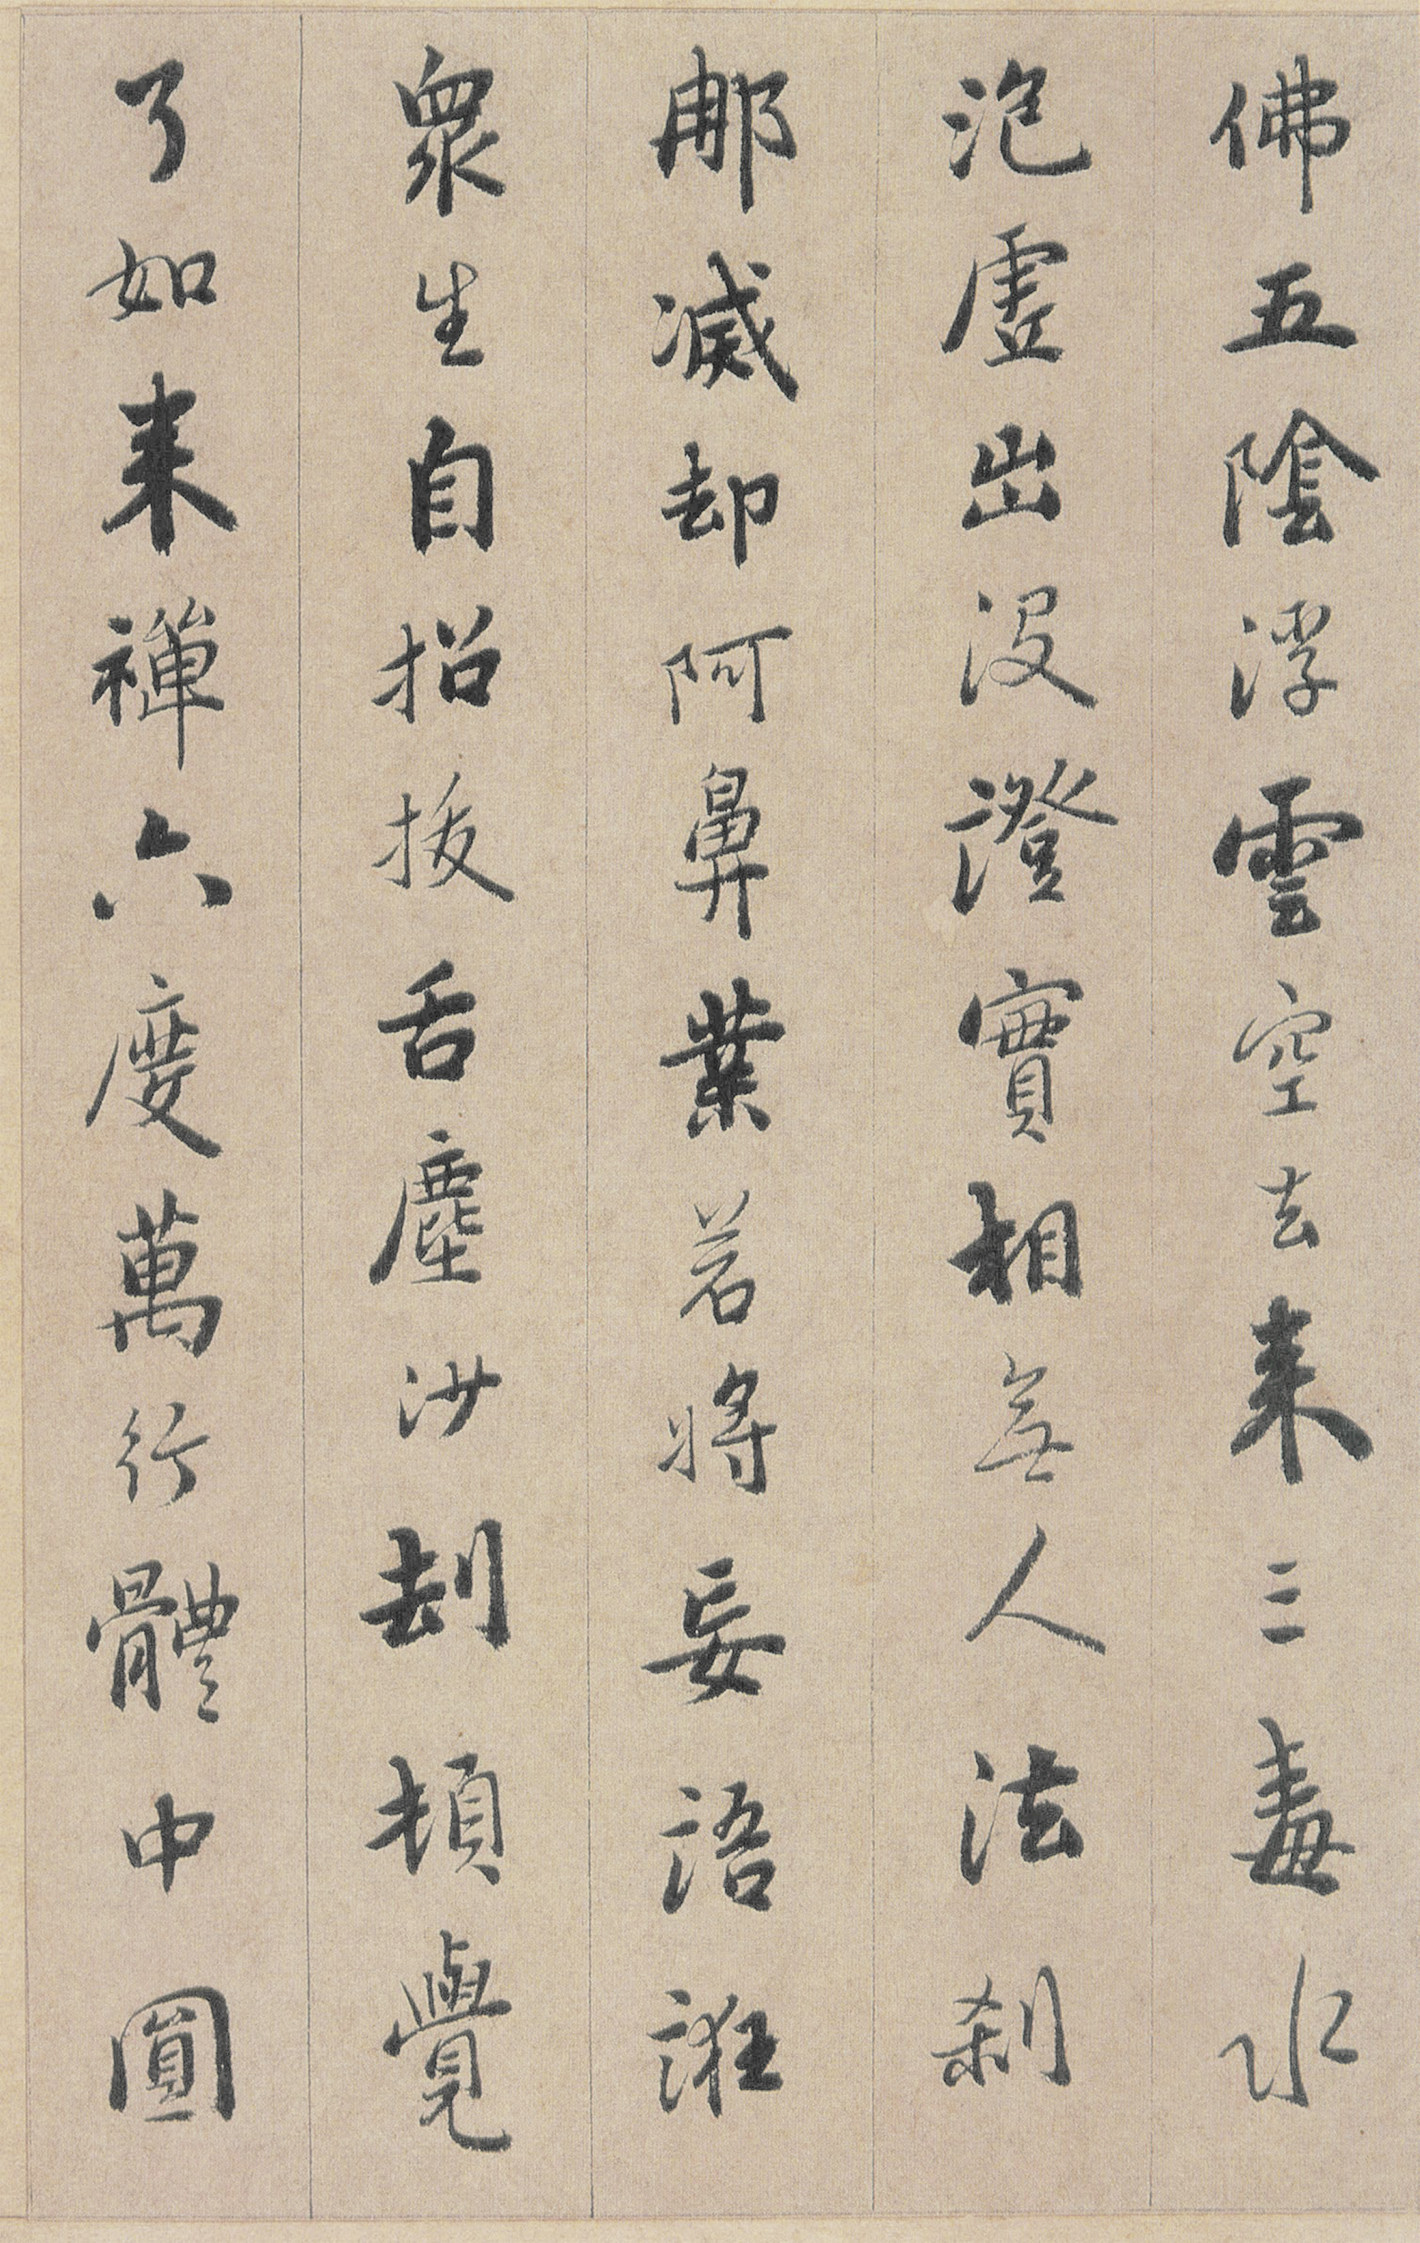 佛五陰浮雲空去来三毒水
泡虛出没澄實相無人法刹
那滅却阿鼻業若將妄語誑
衆生自招拔舌塵沙劫頓覺
了如来禪六度萬行體中圓